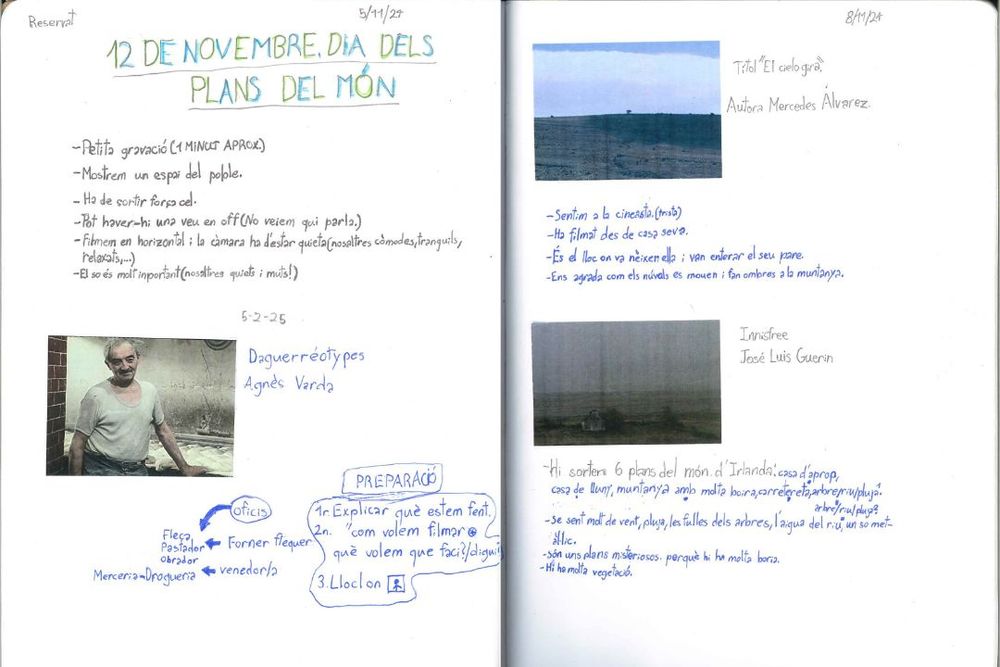 Reservat
5/11/24
12 DE NOVEMBRE. DIA DELS
PLANS DEL MÓN
-Petita gravació (1 MINUT APROX.)
-Mostrem un espai del poble.
-Ha de sortir força cel.
-Pot haver-hi una veu en off (No veiem qui parla.)
-Filmem en horitzontal i la càmara ha d'estar quieta (nosaltres còmodes, tranquils,
relaxats,...)
-El so és molt important (nosaltres quiets i muts!)
5-2-25
Daguerréotypes
Agnès Varda
PREPARACIÓ
1r Explicar què estem fent.
2n. "com volem filmar
què volem que faci?/digui
3. Lloc on
oficis
Fleca
Pastador
obrador
Forner flequer
Merceria-Drogueria
venedor/a
8/11/24
Títol "El cielo gira".
Autora Mercedes Álvarez.
-Sentim a la cineasta. (trista)
-Ha filmat des de casa seva.
-És el lloc on va nèixen ella i van enterar el seu pare.
-Ens agrada com els núvols es mouen i fan ombres a la muntanya.
Innisfree
José Luis Guerin
-Hi sorten 6 plans del món d'Irlanda: casa d'aprop,
casa de lluny, muntanya amb molta boira, carretereta, arbre/riu/pluja?
arbre/riu/pluja?
-Se sent molt de vent, pluja, les fulles dels arbres, l'aigua del riu, un so met-
àl·lic.
-són uns plans misteriosos. perquè hi ha molta boria.
-Hi ha molta vegetació.